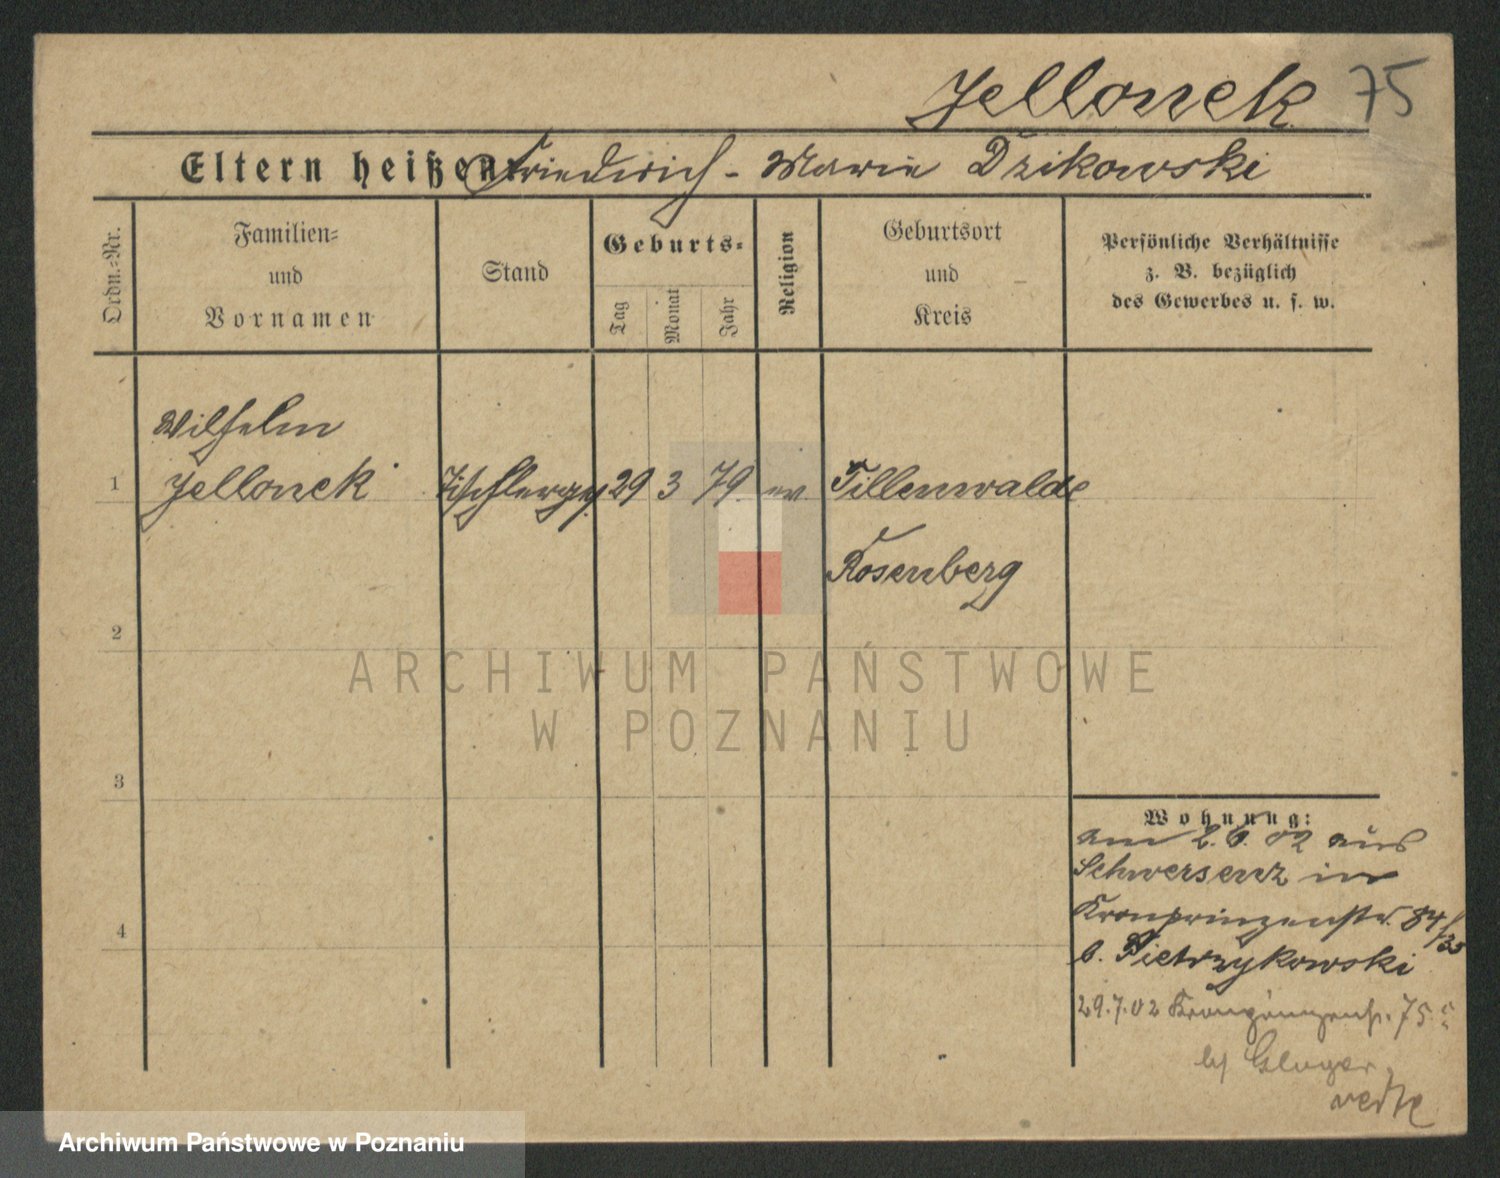 Jellonek 75
Eltern heißen: Friedrich - Marie Dzikowski
Ordn.-Nr.
Familien-
und
Vornamen
Stand
Geburts-
Tag
Monat
Jahr
Religion
Geburtsort
und
Kreis
Persönliche Verhältnisse
z. B. bezüglich
des Gewerbes u. s. w.
Wilhelm
1 Jellonek Tischlerges 29 3 79 ev Tillenwalde
Rosenberg
2
ARCHIWUM PAŃSTWOWE
W POZNANIU
3
Wohnung:
am 2. 6. 02 aus
Schwersenz in
4 Kronprinzenstr. 84/35
b. Pietrzykowski
29.7.02 Kronprinzenstr. 75
bei Gluger
Archiwum Państwowe w Poznaniu